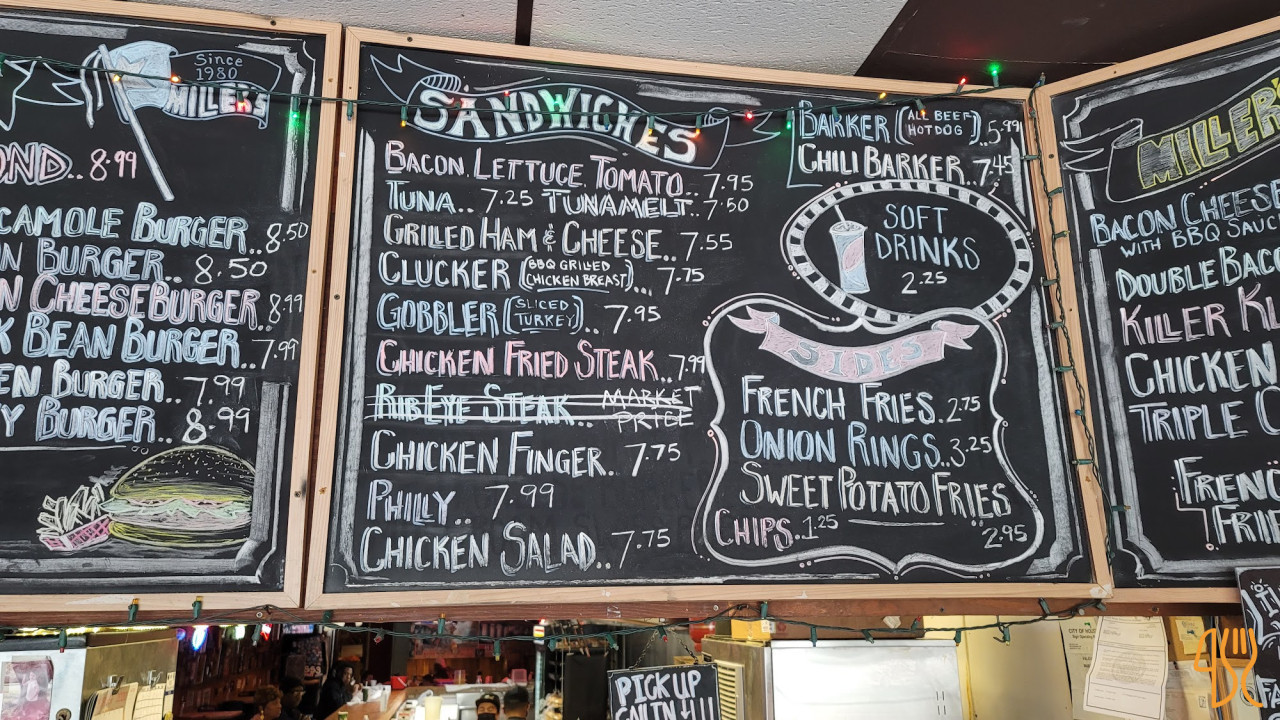 Since
1980
MILLERS
OND.. 8.99
CAMOLE BURGER.. 8.50
N BURGER.. 8.50
N CHEESEBURGER.. 8.99
K BEAN BURGER.. 7.99
EN BURGER.. 7.99
Y BURGER.. 8.99
SANDWICHES
BACON, LETTUCE, TOMATO.. 7.95
TUNA.. 7.25 TUNA MELT.. 7.50
GRILLED HAM & CHEESE.. 7.55
CLUCKER (BBQ GRILLED CHICKEN BREAST)... 7.75
GOBBLER (SLICED TURKEY).. 7.95
CHICKEN FRIED STEAK.. 7.99
RIBEYE STEAK... MARKET PRICE
CHICKEN FINGER.. 7.75
PHILLY.. 7.99
CHICKEN SALAD.. 7.75
BARKER (ALL BEEF HOTDOG).. 5.99
CHILI BARKER.. 7.45
SOFT
DRINKS
2.25
SIDES
FRENCH FRIES.. 2.75
ONION RINGS.. 3.25
SWEET POTATO FRIES
2.95
CHIPS.. 1.25
MILLER'
BACON CHEESE
WITH BBQ SAUC
DOUBLE BACO
KILLER K
CHICKEN
TRIPLE C
FRENC
FRI
PICK UP